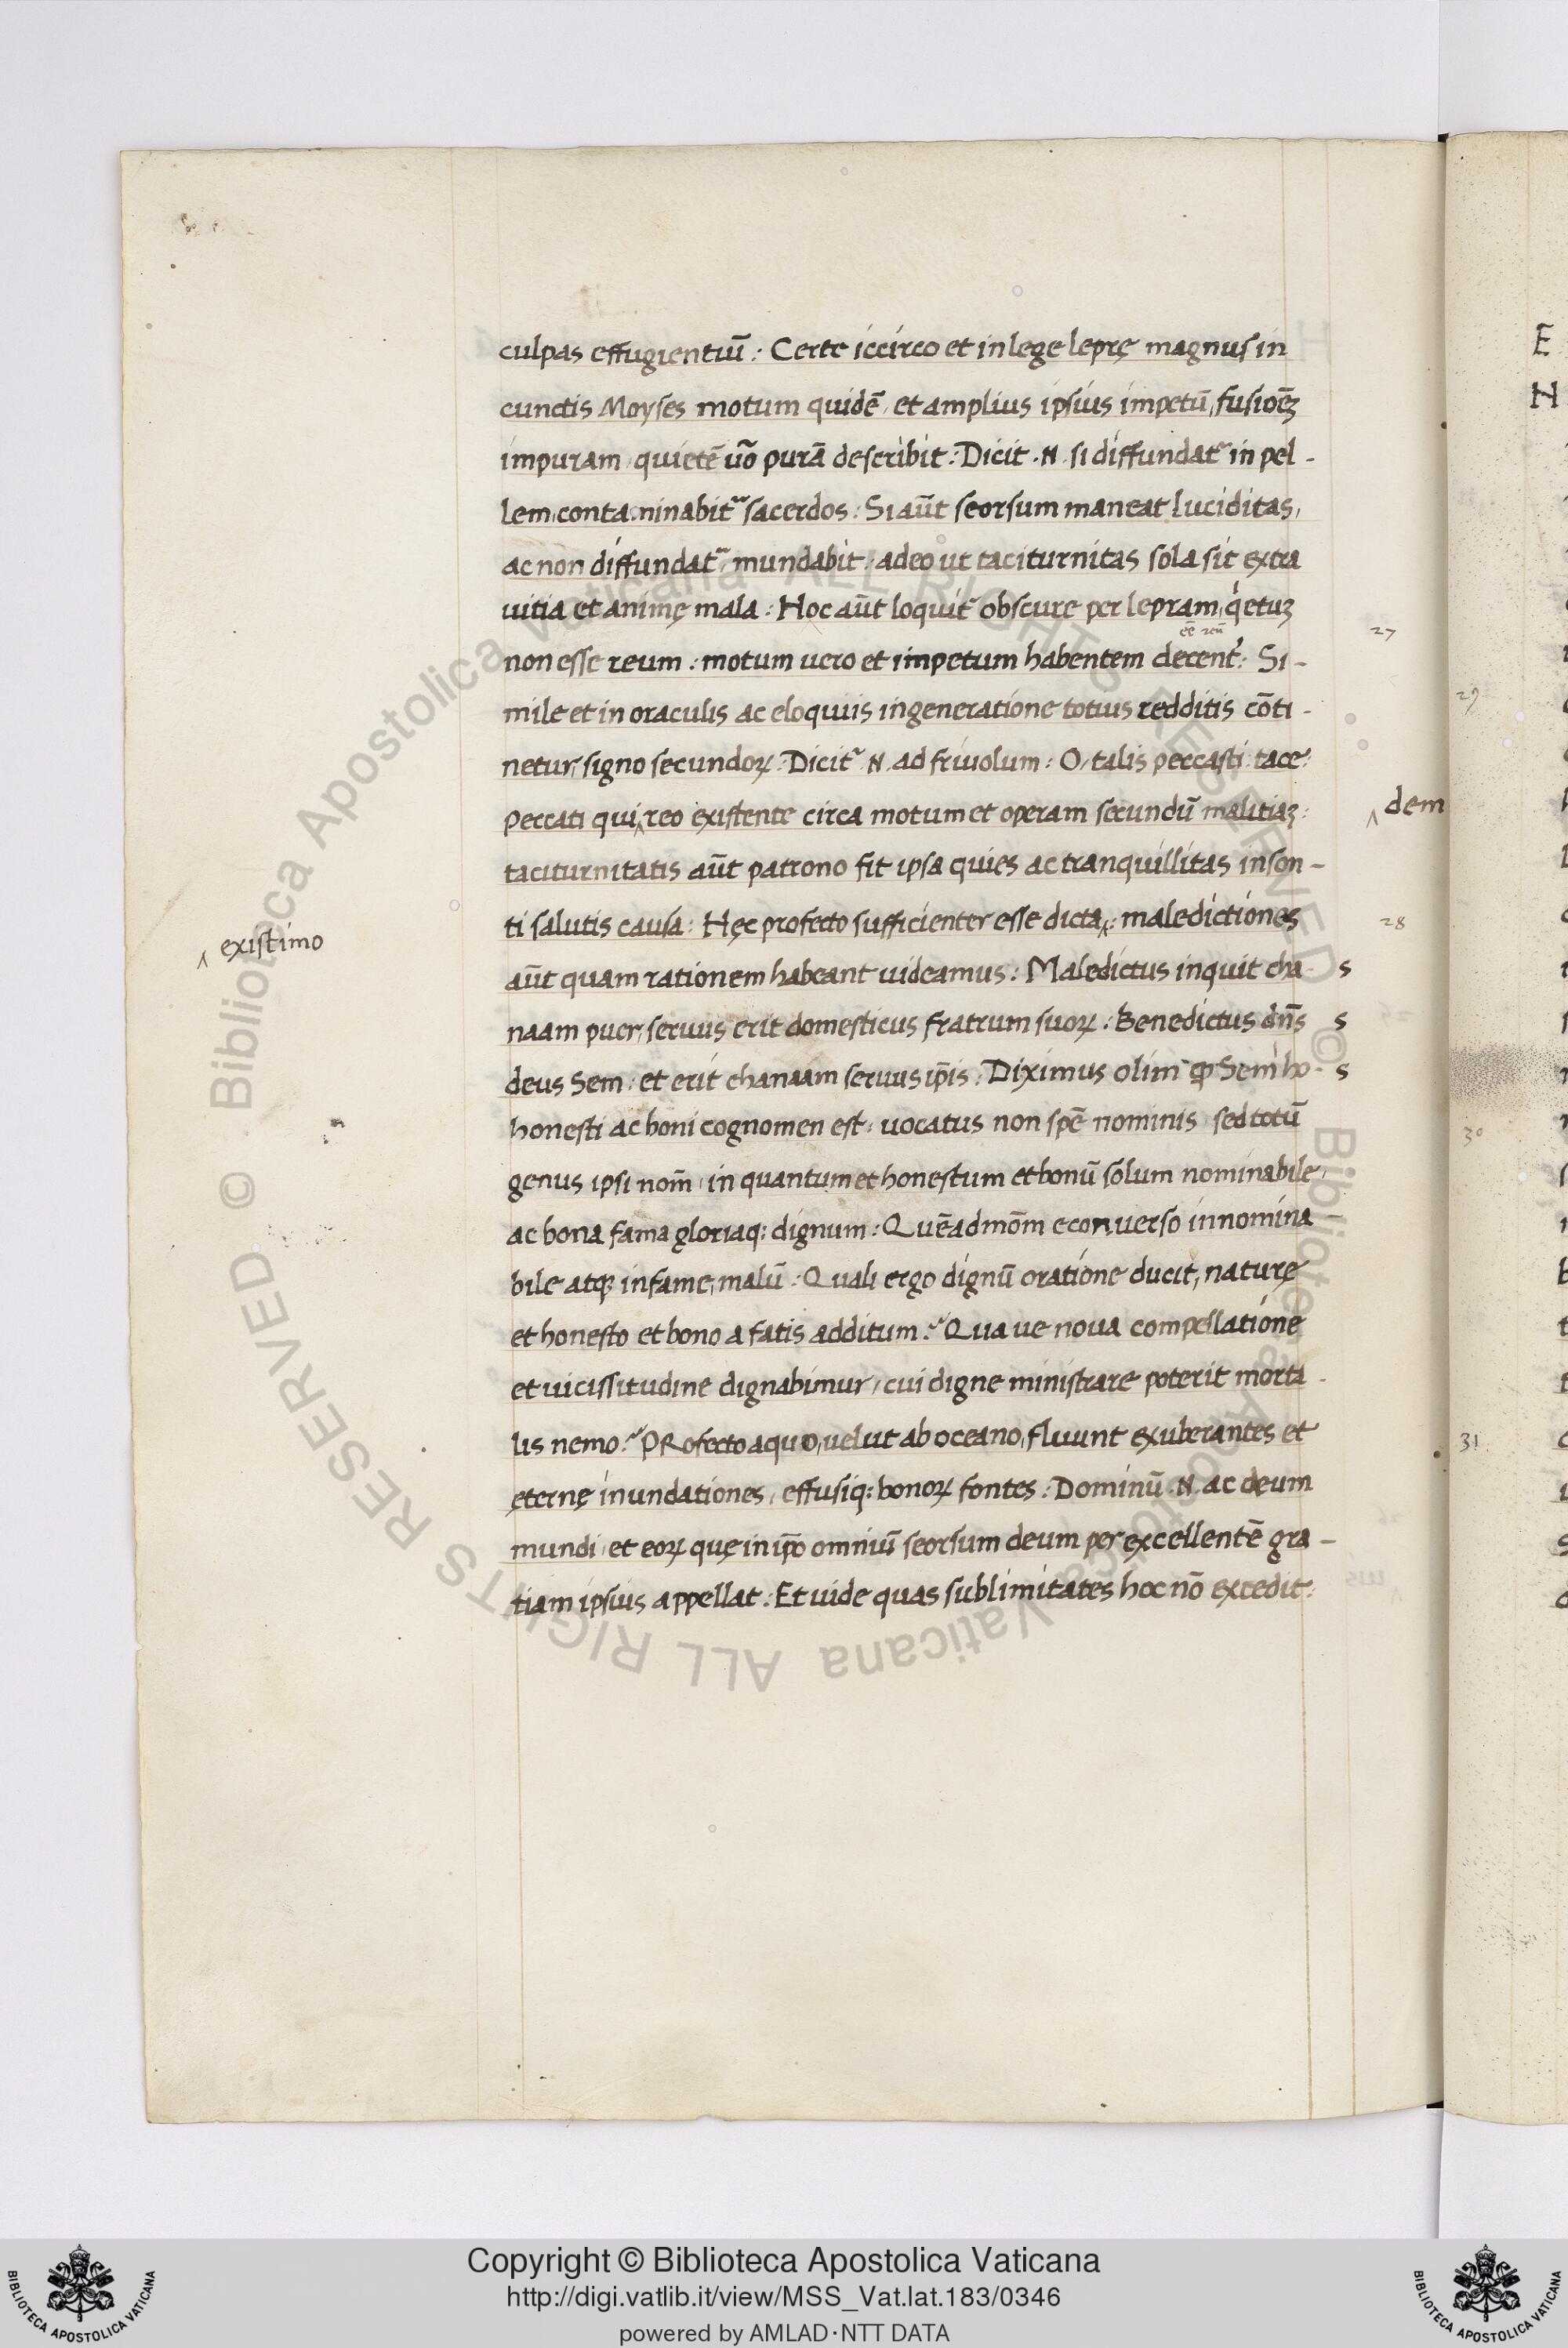 culpas effugientiū : Certe iccirco et in lege leprę magnus in
cunctis Moyses motum quidē , et amplius ipsius impetū , fusioēꝫ
impuram , quietē uo͞ purā describit : Dicit . N . si diffundat᷑ in pel -
lem , contaminabit᷑ sacerdos : Si aut͞ seorsum maneat luciditas ,
ac non diffundat᷑ , mundabit : adeo ut taciturnitas sola sit extra
uitia et animę mala : Hoc aut͞ loquit᷑ obscure per lepram , q̇etuꝫ
eē reū
27
non esse reum : motum uero et impetum habentem decent᷑ : Si -
mile et in oraculis ac eloquiis in generatione totius redditis cōti -
netur , signo secundoꝝ : Dicit᷑ . N . ad friuolum : O , talis peccasti : tace :
Peccati qui‸ reo existente circa motum et operam secundū malitiaꝫ :
‸ dem
taciturnitatis aut͞ patrono fit ipsa quies ac tranquillitas inson -
ti salutis causa : Hęc profecto sufficienter esse dicta‸ : maledictiones
28
‸ existimo
aut͞ quam rationem habeant uideamus : Maledictus inquit cha - s
naam puer , seruus erit domesticus fratrum suoꝝ : Benedictus dn͞s s
deus Sem : et erit chanaam seruus ip͞is : Diximus olim ꝙ Sem ho - s
honesti ac boni cognomen est : uocatus non spē nominis sed totū
genus ipsi nom͞ , in quantum et honestum et bonū solum nominabile ,
ac bona fama gloriaq; dignum : Quēadmōm econuerso innomina -
bile atqꝫ infame , malū : Quali ergo dignū oratione ducit , naturę
et honesto et bono a fatis additum ? Qua ue noua compellatione
et uicissitudine dignabimur , cui digne ministrare poterit morta -
lis nemo ? PRofecto a quo , uelut ab oceano , fluunt exuberantes et
ęternę inundationes , effusiq; bonoꝝ fontes : Dominū . N . ac deum
mundi , et eoꝝ quę in ip͞o omniū seorsum deum per excellentē gra -
tiam ipsius appellat : Et uide quas sublimitates hoc nō excedit :
E
N
29
30
31
© Biblioteca Apostolica Vaticana ALL RIGHTS RESERVED © Biblioteca Apostolica Vaticana ALL RIGHTS RESERVED
BIBLIOTECA APOSTOLICA VATICANA
Copyright © Biblioteca Apostolica Vaticana
http://digi.vatlib.it/view/MSS_Vat.lat.183/0346
powered by AMLAD·NTT DATA
BIBLIOTECA APOSTOLICA VATICANA